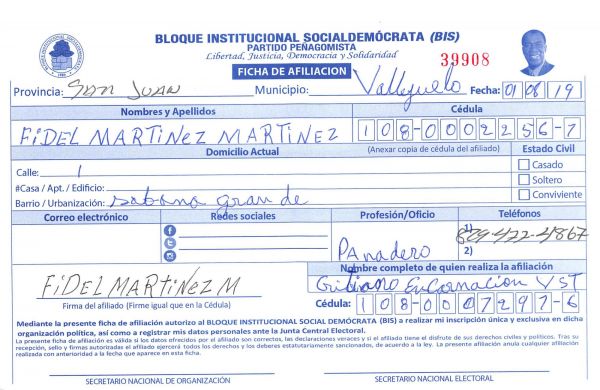 BLOQUE INSTITUCIONAL SOCIALDEMÓCRATA (BIS)
PARTIDO PEÑAGOMISTA
Libertad, Justicia, Democracia y Solidaridad
39908
FICHA DE AFILIACION
Provincia: SAN JUAN Municipio: Vallejuelo Fecha: 01 08 19
Nombres y Apellidos Cédula
FiDEL MARTINEZ MARTINEZ 108-0002256-7
Domicilio Actual (Anexar copia de cédula del afiliado) Estado Civil
Calle: 1 Casado
#Casa / Apt. / Edificio: Soltero
Barrio / Urbanización: sabana grande Conviviente
Correo electrónico Redes sociales Profesión/Oficio Teléfonos
1) 829-422-4867
PANadero 2)
Nombre completo de quien realiza la afiliación
FiDEL MARTiNEZ M EnCarnación
Firma del afiliado (Firme igual que en la Cédula) Cédula: 108-0007297-6
Mediante la presente ficha de afiliación autorizo al BLOQUE INSTITUCIONAL SOCIAL DEMÓCRATA (BIS) a realizar mi inscripción única y exclusiva en dicha
organización política, así como a registrar mis datos personales ante la Junta Central Electoral.
La presente ficha de afiliación es válida si los datos ofrecidos por el afiliado son correctos, las declaraciones veraces y si el afiliado tiene el disfrute de sus derechos civiles y políticos. Tras su
recepción, sello y firmas autorizadas el afiliado ejercerá todos los derechos y los deberes estatutariamente sancionados, de acuerdo a la ley. La presente afiliación anula cualquier afiliación
realizada con anterioridad a la fecha que aparece en esta ficha.
SECRETARIO NACIONAL DE ORGANIZACIÓN SECRETARIO NACIONAL ELECTORAL